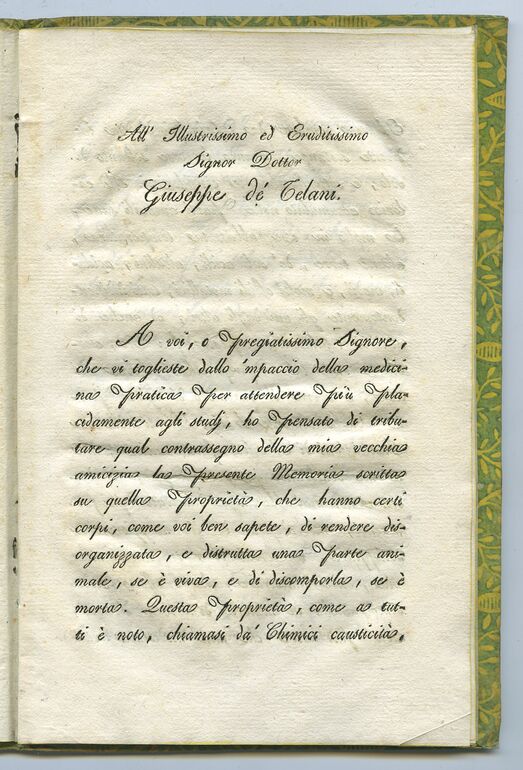 All' Illustrissimo ed Eruditissimo
Signor Dottor
Giuseppe dé Telani.
A voi, o Pregiatissimo Signore,
che vi toglieste dallo impaccio della medici-
na Pratica Per attendere Più Pla-
cidamente agli studj, ho Pensato di tribu-
tare qual contrassegno della mia vecchia
amicizia la Presente Memoria scritta
su quella Proprietà, che hanno certi
corpi, come voi ben sapete, di rendere dis-
organizzata, e distrutta una Parte ani-
male, se è viva, e di discomporla, se è
morta. Questa Proprietà, come a tut-
ti è noto, chiamasi da' Chimici causticità,